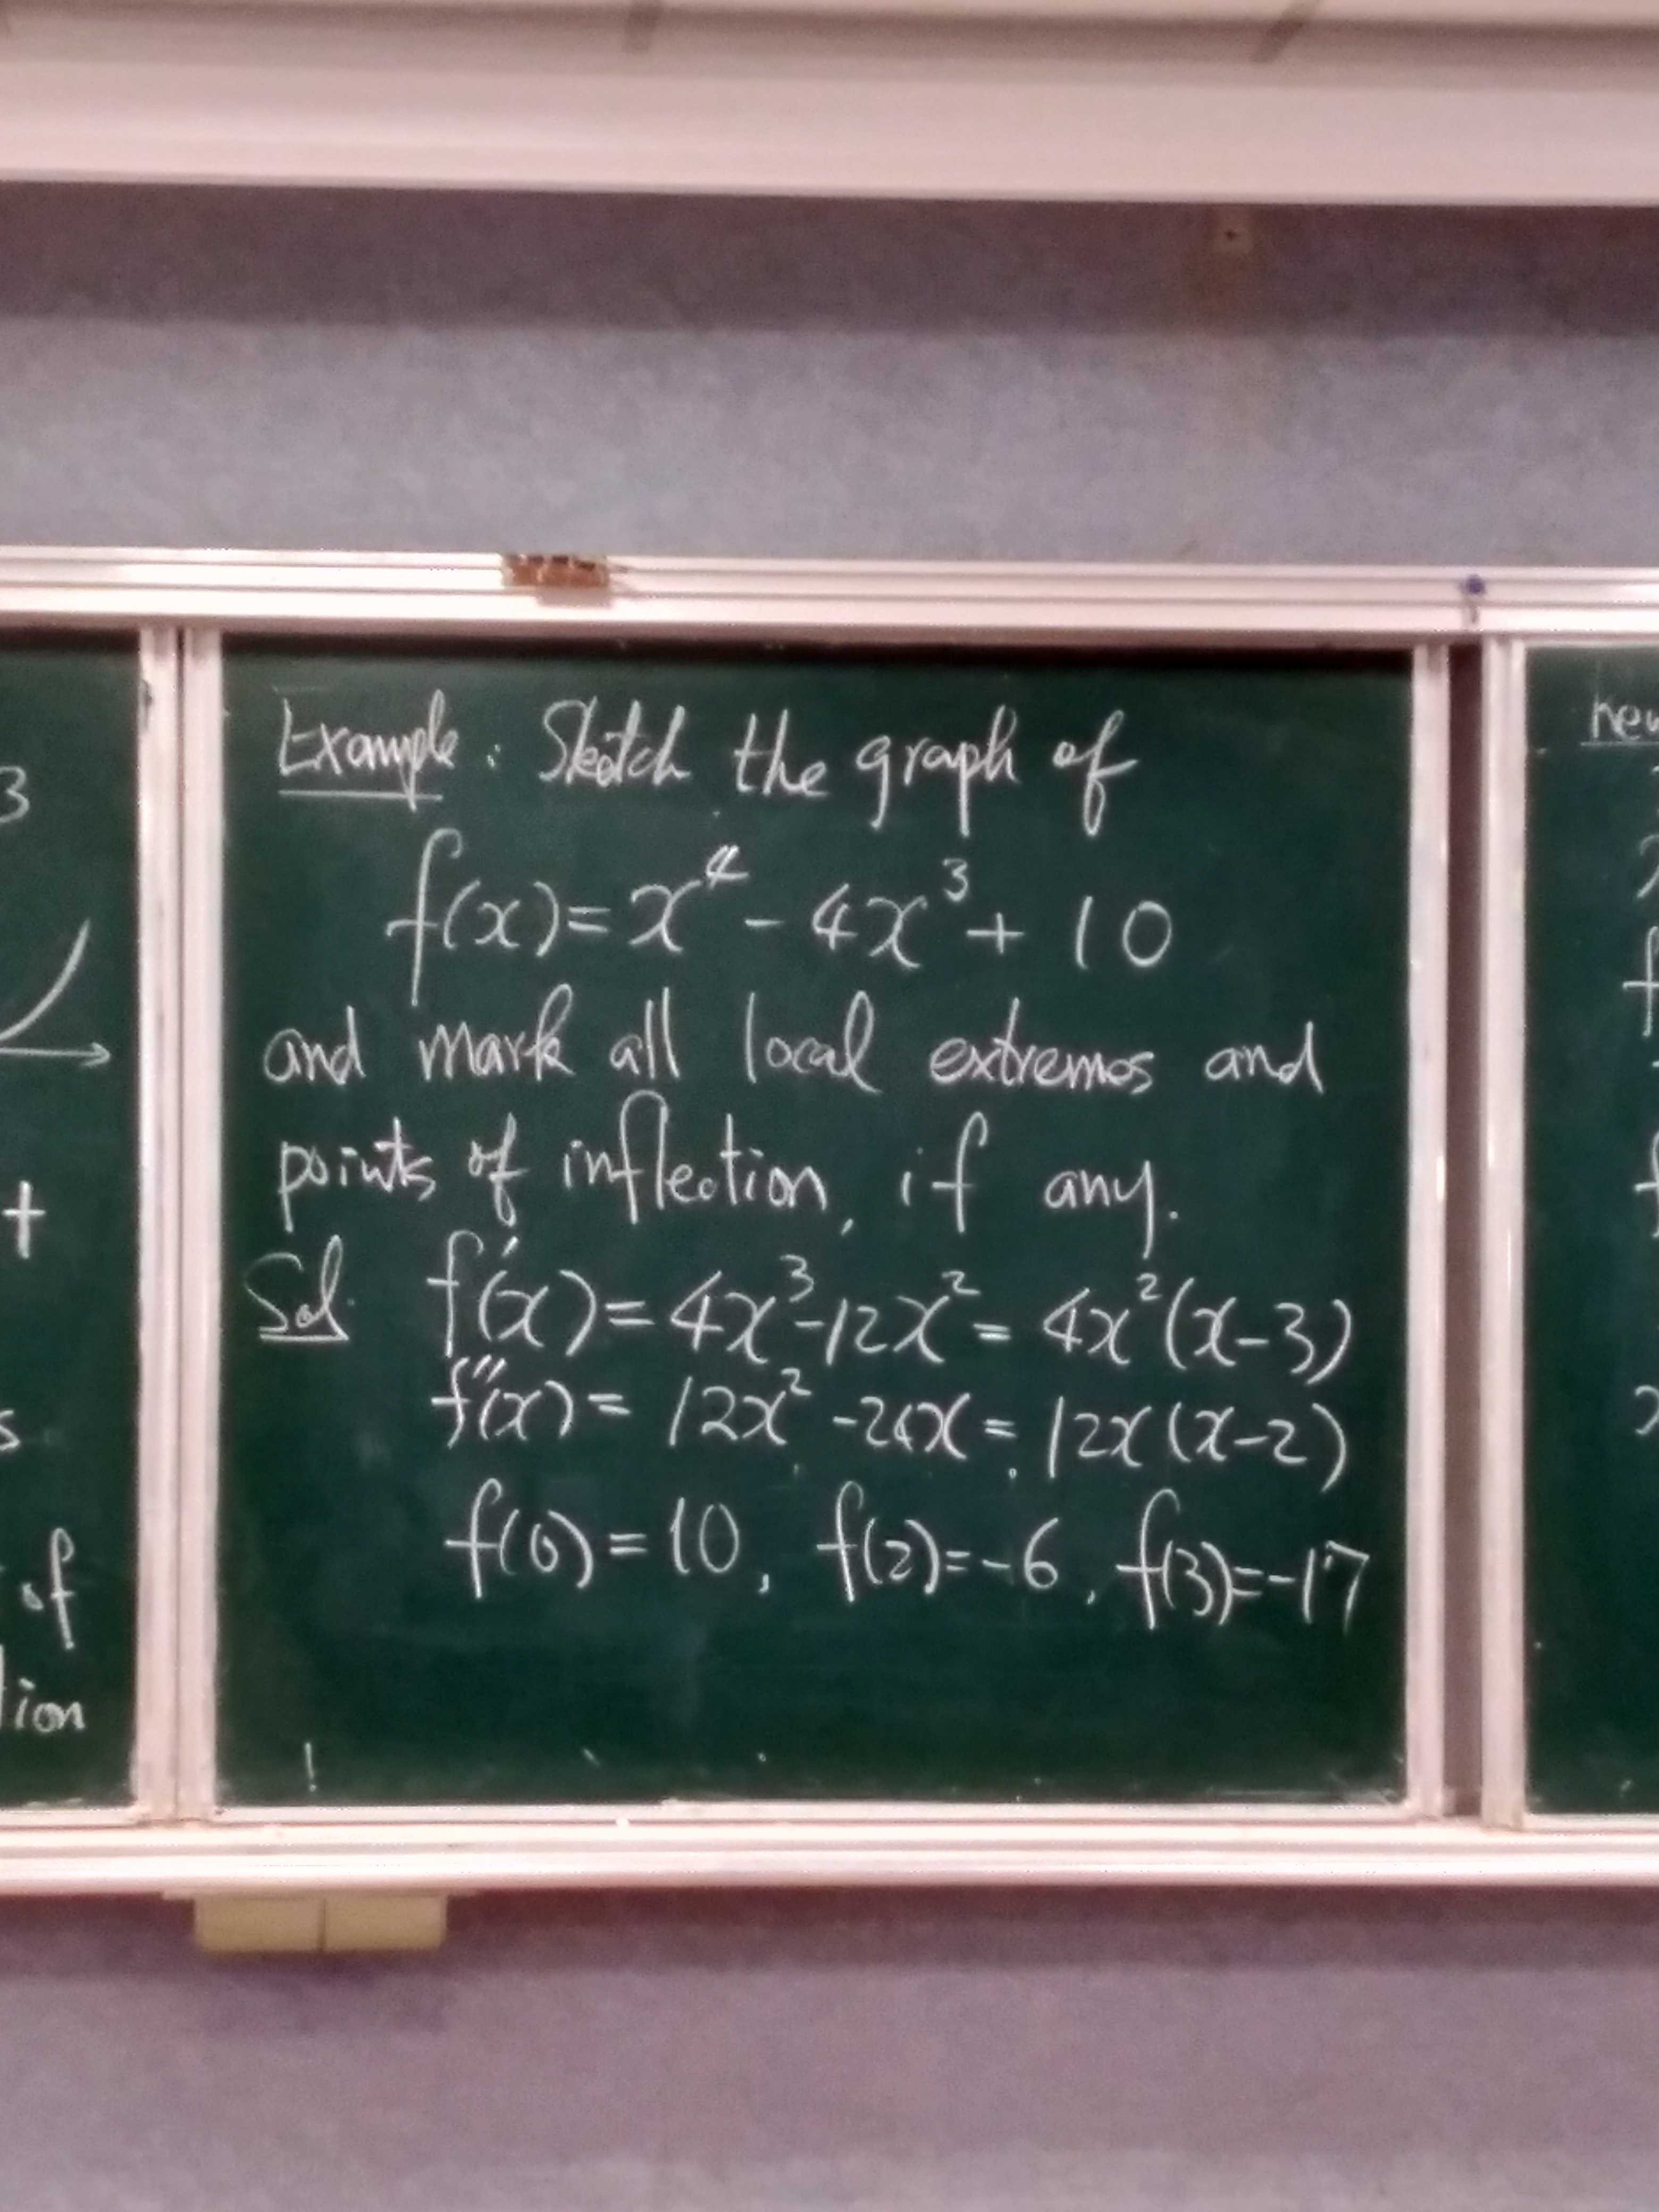 3
+
s
of
Example: Sketch the graph of
f(x) = x⁴ - 4x³ + 10
and mark all local extremes and
points of inflection, if any.
Sol. f'(x) = 4x³-12x² = 4x²(x-3)
f''(x) = 12x² -24x = 12x(x-2)
f(0) = 10, f(2)=-6, f(3)=-17